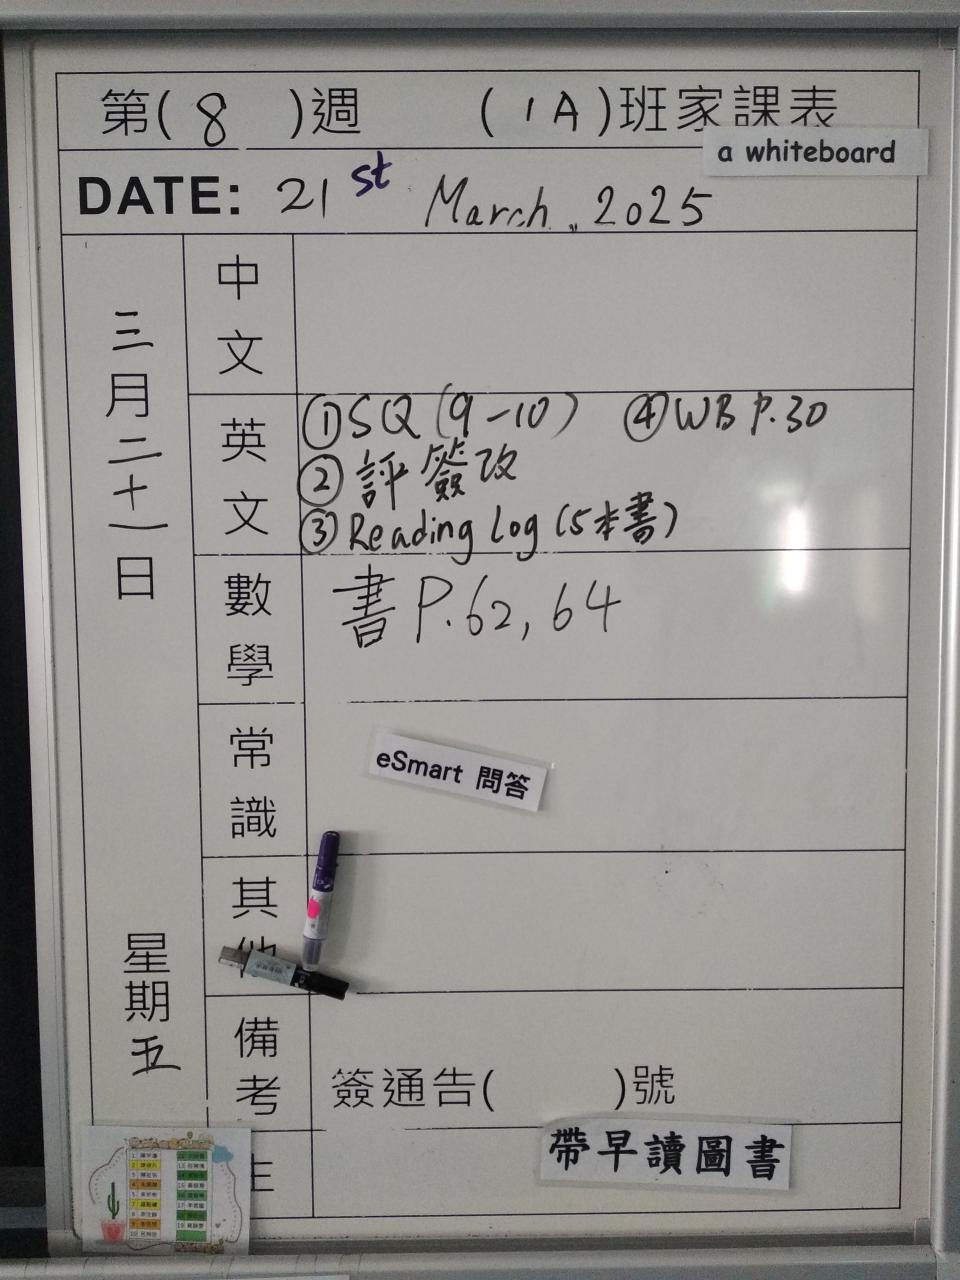 第( 8 )週 ( 1A )班家課表
a whiteboard
DATE: 21st March, 2025
三月二十一日
星期五
中文
英文
① SQ (9-10) ④ WB P.30
② 評簽改
③ Reading Log (5本書)
數學
書 P.62, 64
常識
eSmart 問答
其他
備考
簽通告( )號
帶早讀圖書